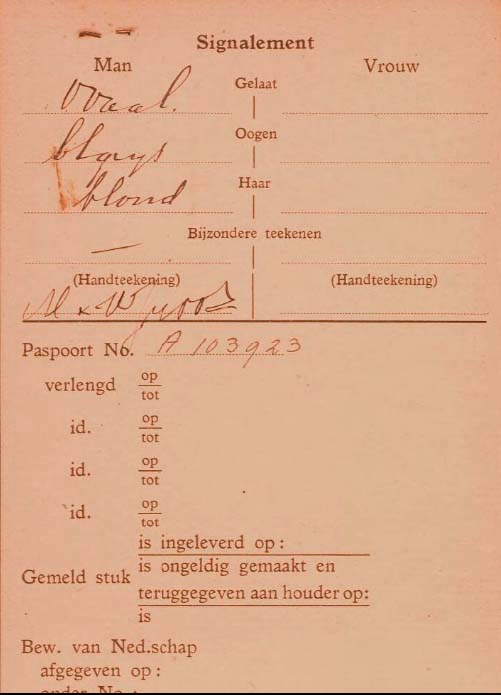 Signalement
Man Vrouw
Gelaat
ovaal.
Oogen
blgrys
Haar
blond
Bijzondere teekenen
—
(Handteekening) (Handteekening)
Paspoort No. A 103923
verlengd op
tot
id. op
tot
id. op
tot
id. op
tot
is ingeleverd op :
Gemeld stuk is ongeldig gemaakt en
teruggegeven aan houder op:
is
Bew. van Ned.schap
afgegeven op :
onder No :